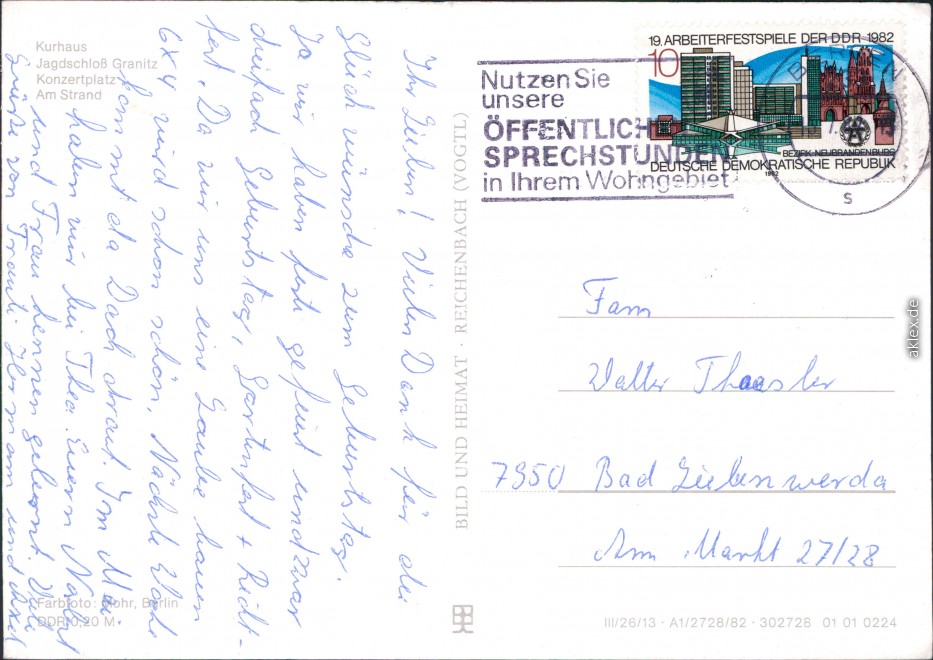 Kurhaus
Jagdschloß Granitz
Konzertplatz
Am Strand
Ihr Lieben! Vielen Dank für die
Glückwünsche zum Geburtstag.
Ja wir haben fest gefeiert undzwar
dreifach Geburtstag, Gartenfest + Richt-
fest. Da wir uns eine Laube bauen
6x4 wird schon schön. Nächste Woche
kommt da Dach drauf. Im Mai
haben wir bei Thea Euern Nobert
und Frau kennen gelernt. Viele
Grüße von Trautl Hermann und Axel
Farbfoto: Mohr, Berlin
DDR 0,20 M
BILD UND HEIMAT · REICHENBACH (VOGTL)
Nutzen Sie
unsere
ÖFFENTLICH
SPRECHSTUNDEN
in Ihrem Wohngebiet
19. ARBEITERFESTSPIELE DER DDR 1982
10
BEZIRK NEUBRANDENBURG
DEUTSCHE DEMOKRATISCHE REPUBLIK
1982
s
Fam
Walter Thaesler
7950 Bad Liebenwerda
Am Markt 27/28
III/26/13 · A1/2728/82 · 302726 01 01 0224
aklex.de